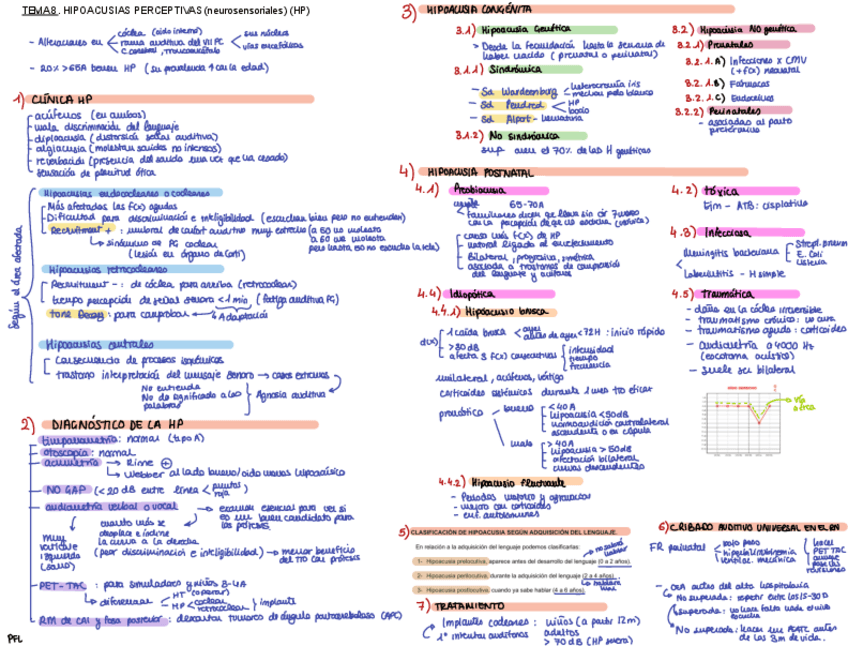 TEMA 8. HIPOACUSIAS PERCEPTIVAS (neurosensoriales) (HP)
- Alteraciones en
cóclea (oído interno)
rama auditiva del VIII PC
sus núcleos
vías encefálicas
- 20% >65A tienen HP (su prevalencia ↑ con la edad)
1) CLÍNICA HP
acúfenos (en ambos)
mala discriminación del lenguaje
diploacusia (distorsión señal auditiva)
algiacusia (molestan sonidos no intensos)
reverberación (presencia del sonido una vez que ha cesado)
sensación de plenitud ótica
Según el área afectada
Hipoacusias endococleares o cocleares
Más afectadas las f(x) agudas
Dificultad para discriminación e inteligibilidad (escuchan bien pero no entienden)
Recruitment + : umbral de confort auditivo muy estrecho
(lesión en órgano de Corti)
Hipoacusias retrococleares
Recruitment - : de cóclea para arriba (retrococlear)
tiempo percepción de señal sonora <1 min (fatiga auditiva PG)
tone Decay : para comprobar
↓ Adaptación
Hipoacusias centrales
Consecuencia de procesos isquémicos
trastorno interpretación del mensaje sonoro → casos extremos
No entienda
No da significado a las palabras
Agnosia auditiva
2) DIAGNÓSTICO DE LA HP
timpanometría: normal (tipo A)
otoscopia: normal
acumetría → Rinne +
→ Webber al lado bueno/oído menos hipoacúsico
- NO GAP (<20 dB entre línea
puntos
roja)
audiometría verbal o vocal
→ examen esencial para ver si es un buen candidato para las prótesis.
muy variable
izquierda
(sano)
cuanto más se desplaza e incline la curva a la derecha
(peor discriminación e inteligibilidad) → menor beneficio del TTO con prótesis
- PET-TAC : para simuladores y niños 3-4A
diferenciar
HT (coopear)
HP
coclear
retrococlear
implante
RM de CAI y fosa posterior : descartar tumores de ángulo pontocerebeloso (APC)
PFL
3) HIPOACUSIA CONGÉNITA
3.1) Hipoacusia Genética
> Desde la fecundación hasta la semana de haber nacido (prenatal o perinatal)
3.1.1) Sindrómica
- Sd Wardeenburg
heterocromía iris
mechón pelo blanco
- Sd Pendred
HP
bocio
- Sd Alport - hematuria
3.1.2) No sindrómica
sup onen el 70% de las H genéticas
3.2) Hipoacusia NO genética
3.2.1) Prenatales
3.2.1.A) Infecciones x CMV (+f(x)) neonatal
3.2.1.B) Fármacos
3.2.1.C) Endocrinas
3.2.2) Perinatales
- asociadas al parto pretérmino
4) HIPOACUSIA POSTNATAL
4.1) Presbiacusia
65-70A
familiares dicen que lleva sin oír 7 años
causa más f(x) de HP
natural ligada al envejecimiento
Bilateral, progresiva, simétrica
asociada a trastornos de comprensión del lenguaje y acúfenos
4.2) tóxica
Tim - ATB: cisplatino
4.3) Infecciosa
Meningitis bacteriana
Strept. pneum
E. Coli
listeria
Laberintitis - H simple
4.4) Idiopática
4.4.1) Hipoacusia brusca
d(x)
1 caída brusca
<72H : inicio rápido
>30 dB
afecta 3 f(x) consecutivas
intensidad
tiempo
frecuencia
unilateral, acúfenos, vértigo
corticoides sistémicos durante 1 mes TTO eficaz
pronóstico
bueno
< 40A
hipoacusia <50dB
normoaudición contralateral
ascendente o en cúpula
malo
> 40A
hipoacusia > 50dB
afectación bilateral
curvas descendentes
4.4.2) Hipoacusia fluctuante
- Periodos mejoría y agravación
- mejora con corticoides
- enf. autoinmunes
4.5) Traumática
- daños en la cóclea irreversible
- traumatismo crónico: no cura
- traumatismo agudo: corticoides
- audiometría a 4000 Hz (escotoma acústico)
- suele ser bilateral
vía ósea
5) CLASIFICACIÓN DE HIPOACUSIA SEGÚN ADQUISICIÓN DEL LENGUAJE.
En relación a la adquisición del lenguaje podemos clasificarlas:
no sabrá hablar
1- Hipoacusia prelocutiva, aparece antes del desarrollo del lenguaje (0 a 2 años).
2- Hipoacusia perlocutiva, durante la adquisición del lenguaje (2 a 4 años).
hablará mal
3- Hipoacusia postlocutiva, cuando ya sabe hablar (4 a 6 años).
6) CRIBADO AUDITIVO UNIVERSAL EN EL RN
FR perinatal
bajo peso
hiperbilirrubinemia
ventilac. mecánica
hacer PET TAC aunque pase las revisiones
- OEA antes del alta hospitalaria
No superada: repetir entre los 15-30D
*No superada: hacer un PEATC antes de los 3m de vida.
7) TRATAMIENTO
Implantes cocleares : niños (a partir 12m)
1º intentar audífonos
adultos
> 70 dB (HP severa)